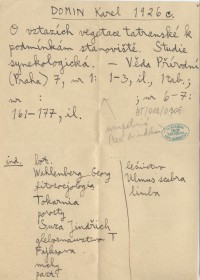 DOMIN Karel 1926 c.
O vztazích vegetace tatrenské k
podmínkám stanoviště. Studie
synekologická. - Věda Přírodní
(Praha) 7, nr 1: 1-3, il., 1 tab.;
nr : ; nr 6-7:
161-177, il.
ind. bot.
Wahlenberg Georg
fitosocjologia
Tokarnia
porosty
Suza Jindřich
T
mchy
leśnictwo
Ulmus scabra
limba